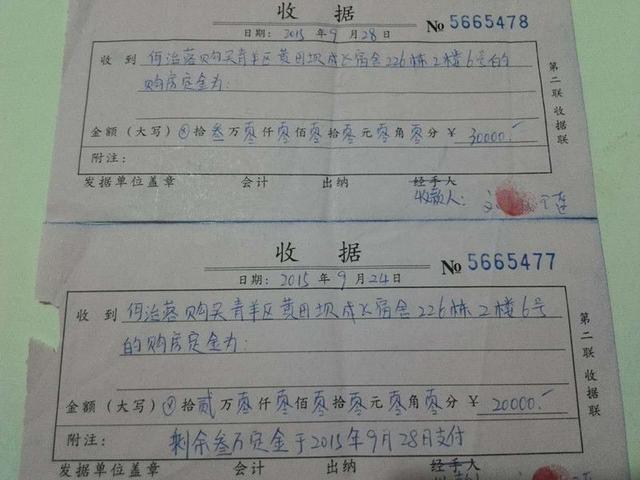 收据
日期：2015年9月28日 No 5665478
收到 何治蓉购买青羊区黄田坝成飞宿舍226栋2楼6号的
购房定金为：
金额（大写）⊗拾叁万零仟零佰零拾零元零角零分 ¥ 30000.-
附注：
发据单位盖章 会计 出纳 经手人
收款人：
第二联 收据联
收据
日期：2015年9月24日 No 5665477
收到 何治蓉购买青羊区黄田坝成飞宿舍226栋2楼6号
的购房定金为：
金额（大写）⊗拾贰万零仟零佰零拾零元零角零分 ¥ 20000.-
附注： 剩余叁万定金于2015年9月28日支付
发据单位盖章 会计 出纳 经手人
第二联 收据联